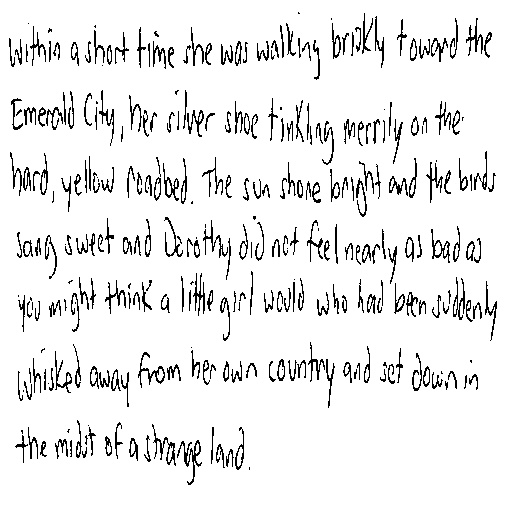 within a short time she was walking briskly toward the
Emerald City, her silver shoe tinkling merrily on the
hard, yellow roadbed. The sun shone bright and the birds
sang sweet and Dorothy did not feel nearly as bad as
you might think a little girl would who had been suddenly
whisked away from her own country and set down in
the midst of a strange land.